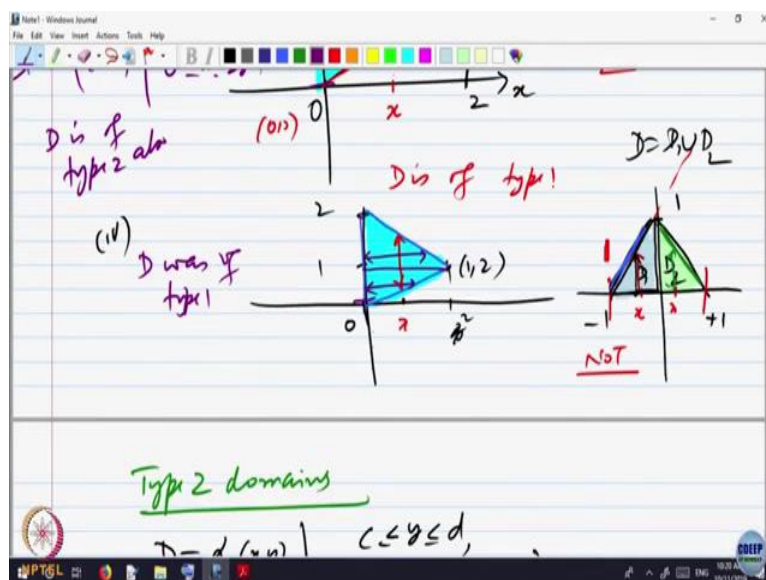 Note1 - Windows Journal
File Edit View Insert Actions Tools Help
B I
0 x 2 x
(0,0)
D is of
type 2 also
D is of type 1
D = D₁ ∪ D₂
(iv)
D was of
type 1
2
1
(1,2)
0 x 2
1
D₁ D₂
-1 x x +1
NOT
Type 2 domains
D = { (x,y) | c ≤ y ≤ d,
NPTEL
CDEEP
ENG